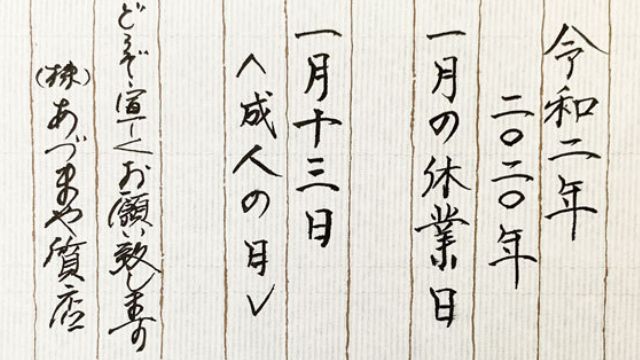 令和二年
二〇二〇年
一月の休業日
一月十三日
〈成人の日〉
どうぞ宜しくお願い致します
(株)あづまや質店